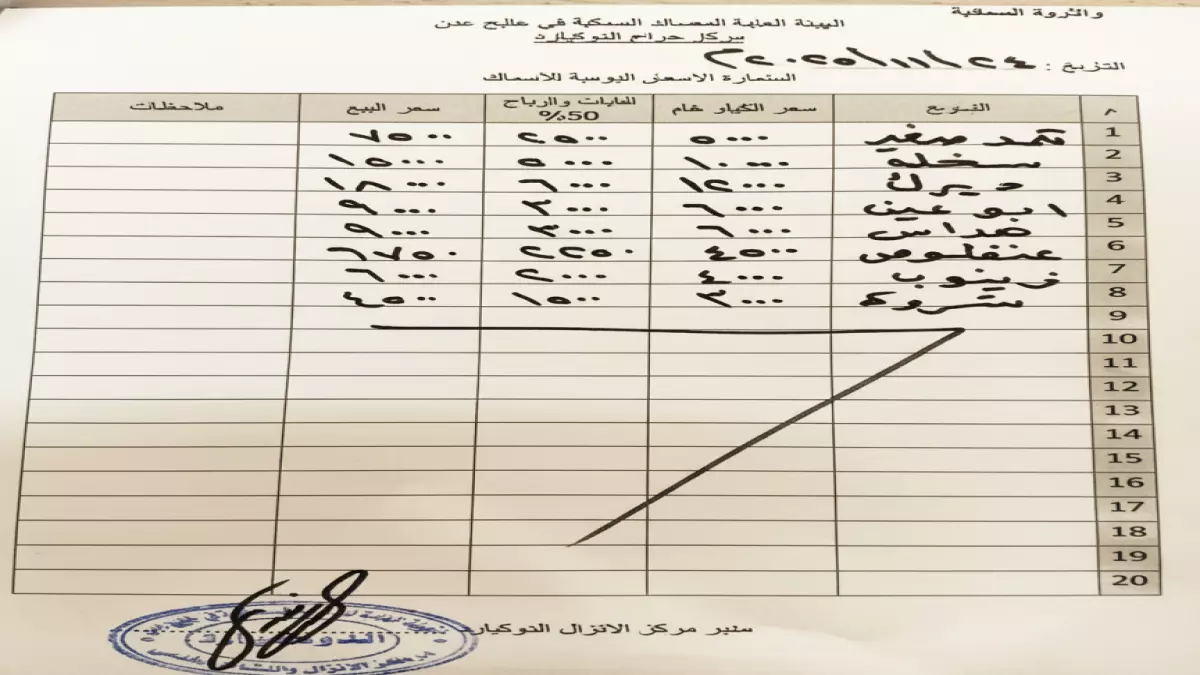 والثروة السمكية
الهيئة العامة للمصائد السمكية في خليج عدن
مركز حراج الدوكيارد
التاريخ : ٢٤/١١/٢٠٢٥م
استمارة الاسعار اليومية للأسماك
م النوع سعر الكيلو خام الغايات والارباح 50% سعر البيع ملاحظات
1 ثمد صغير ٥٠٠٠ ٢٥٠٠ ٧٥٠٠
2 سخله ١٠٠٠٠ ٥٠٠٠ ١٥٠٠٠
3 ديرك ١٢٠٠٠ ٦٠٠٠ ١٨٠٠٠
4 ابو عين ٦٠٠٠ ٣٠٠٠ ٩٠٠٠
5 ضراس ٦٠٠٠ ٣٠٠٠ ٩٠٠٠
6 عنفلوص ٤٥٠٠ ٢٢٥٠ ٦٧٥٠
7 زينوب ٤٠٠٠ ٢٠٠٠ ٦٠٠٠
8 شروة ٣٠٠٠ ١٥٠٠ ٤٥٠٠
9
10
11
12
13
14
15
16
17
18
19
20
مدير مركز الانزال الدوكيارد